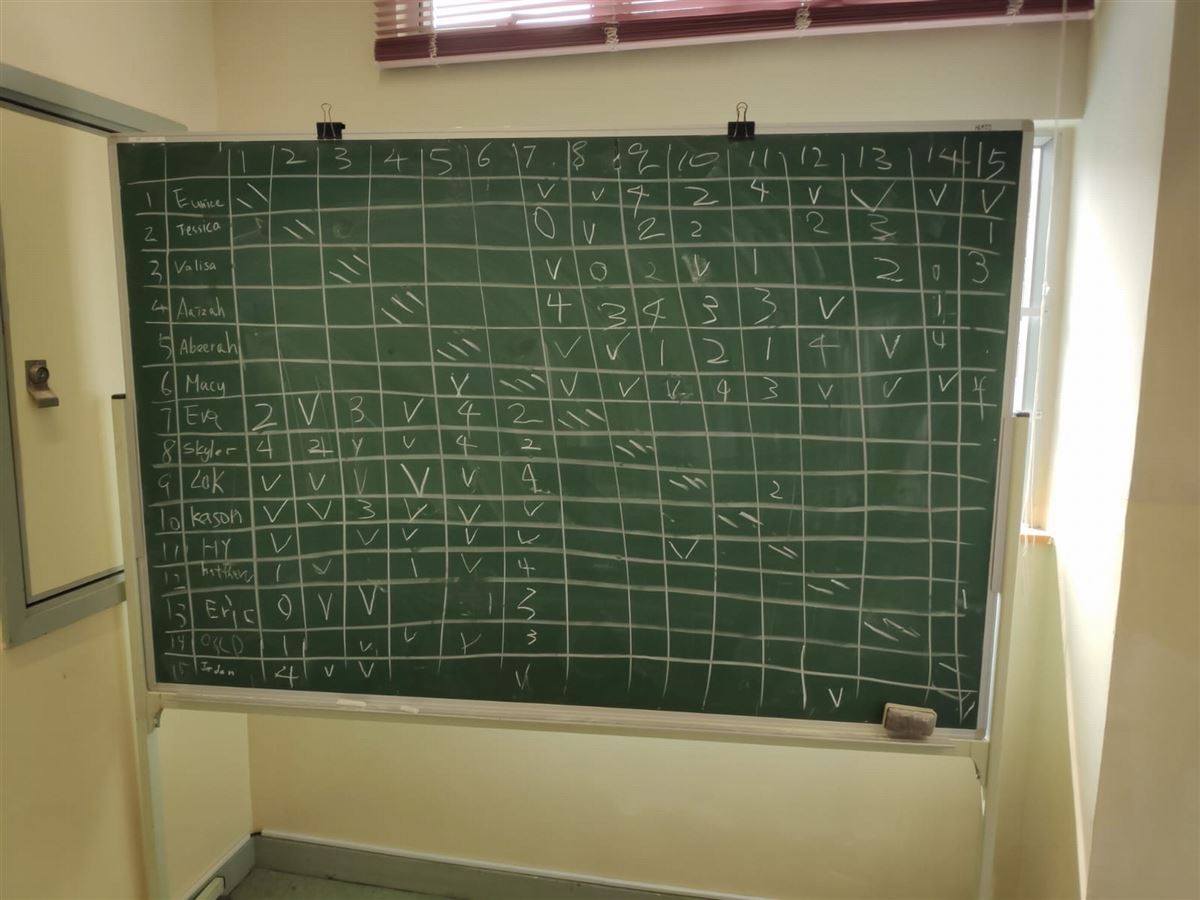 1 2 3 4 5 6 7 8 9 10 11 12 13 14 15
1 Eunice V V 4 2 4 V V V V
2 Jessica 0 V 2 2 2 1
3 Valisa V 0 2 V 1 2 0 3
4 Aaizah 4 3 4 3 3 V 1
5 Abeerah V V 1 2 1 4 V 4
6 Macy V V V V 4 3 V V V 4
7 Eva 2 V 3 V 4 2
8 Skyler 4 4 V V 4 2
9 LOK V V V V V 4 2
10 Kason V V 3 V V V
11 HY V V V V V V
12 1 V 1 V 4
13 Eric 0 V V 1 3 1
14 1 V V V 3
15 4 V V V V V